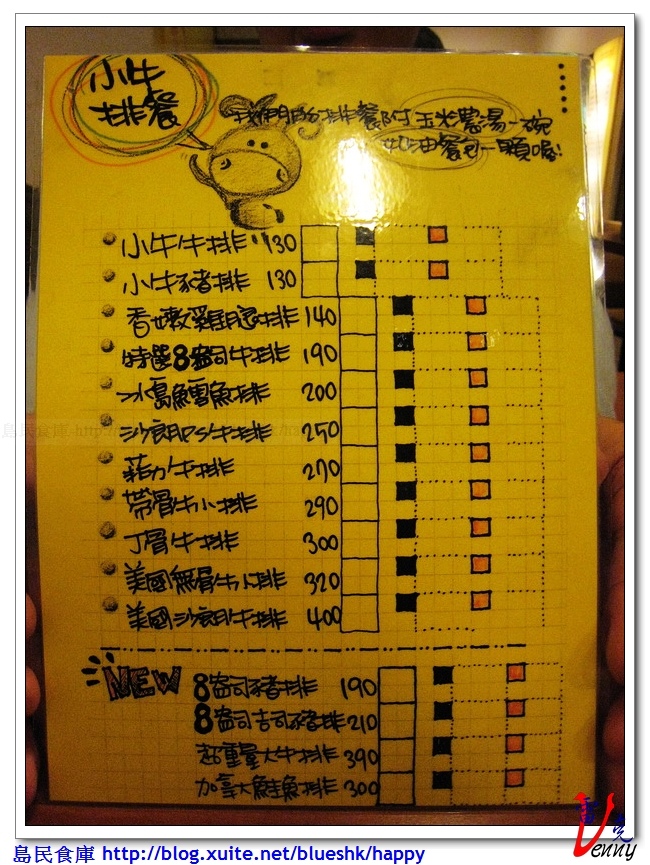 小牛
排餐
我們的排餐附玉米濃湯一碗
奶油餐包一顆喔!
小牛牛排 130
小牛豬排 130
香嫩雞腿排 140
特選8盎司牛排 190
冰島鱈魚排 200
沙朗PS牛排 250
菲力牛排 270
帶骨牛小排 290
丁骨牛排 300
美國無骨牛小排 320
美國沙朗牛排 400
NEW 8盎司豬排 190
8盎司吉司豬排 210
超重量大牛排 390
加拿大鮭魚排 300
Venny
島民食庫 http://blog.xuite.net/blueshk/happy